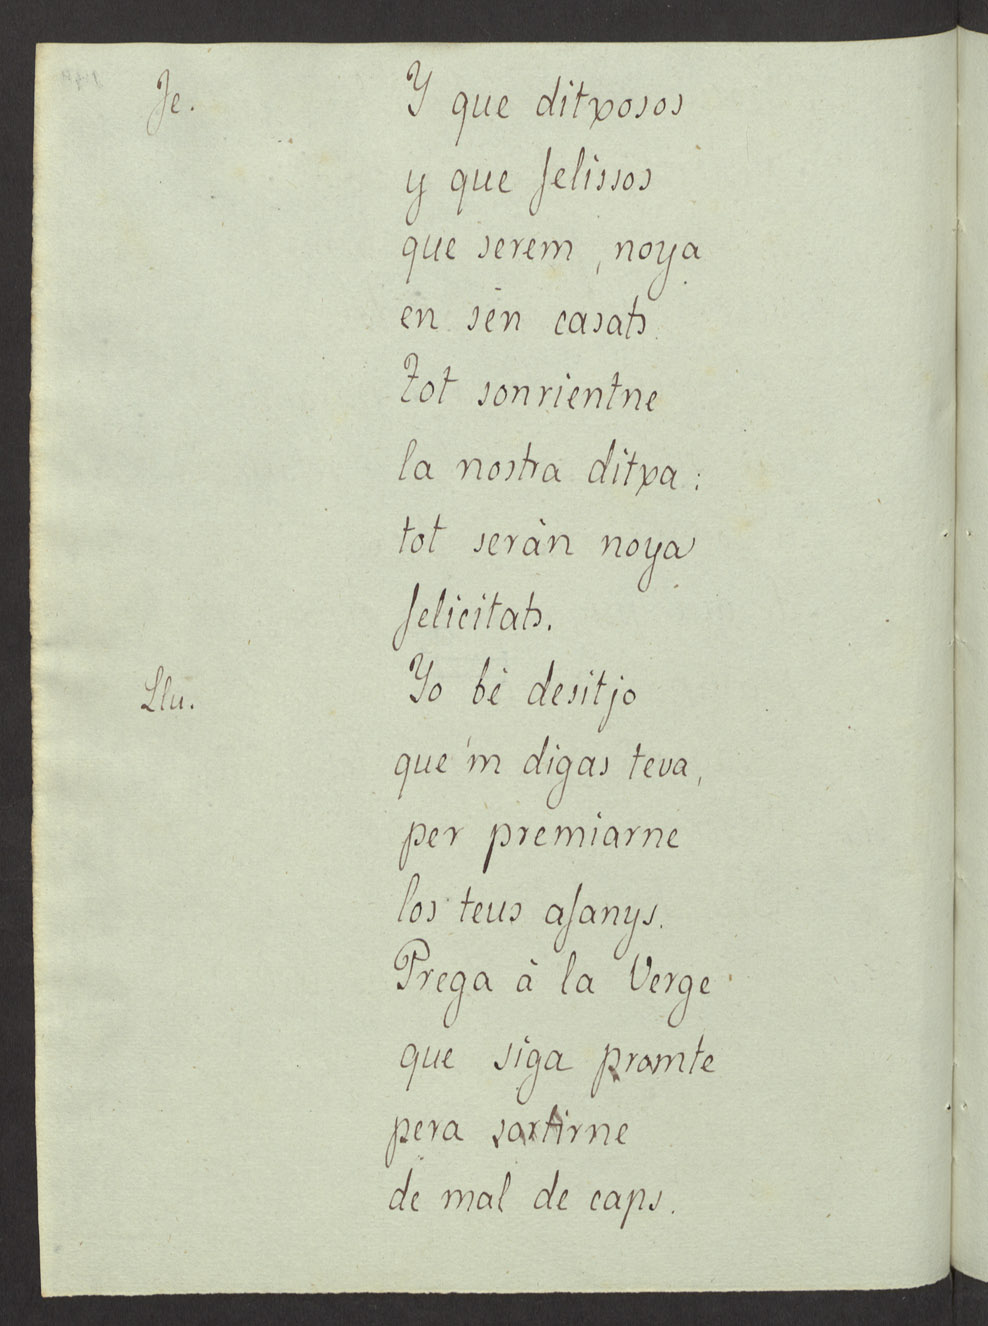 Je. Y que ditxosos
y que felissos
que serem, noya
en sén casats
Tot sonrientne
la nostra ditxa:
tot seràn noya
felicitats.
Llu. Yo bè desitjo
que 'm digas teva,
per premiarne
los teus afanys.
Prega à la Verge
que siga promte
pera sortirne
de mal de caps.